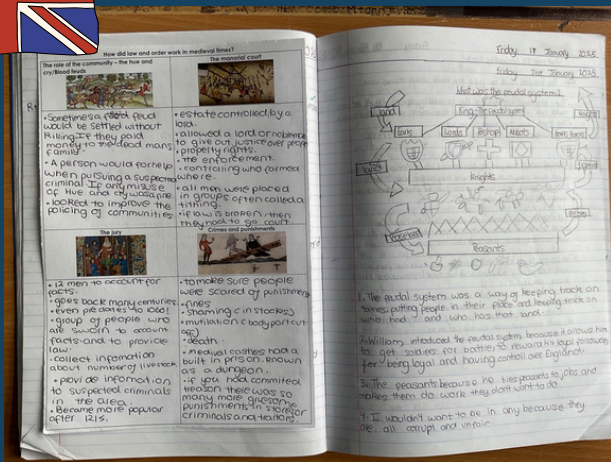 How did law and order work in medieval times?
The role of the community – the hue and
cry/Blood feuds
• Sometimes a feud
would be settled without
killing. If they paid
money to the dead mans
family.
• A person would for help
when pursuing a suspected
criminal. If any misuse
of Hue and cry was a fine
• looked to improve the
policing of communities
The manorial court
• estate controlled by a
lord.
• allowed a lord or noblemen
to give out justice over people
• property rights.
• the enforcement.
• controlling who farmed
where.
• all men were placed
in groups often called a
tithing.
• if law is broken then
they had to go court
The jury
• 12 men to account for
facts.
• goes back many centuries.
even pre dates to 1066!
• group of people who
are sworn to account
facts and to provide
law.
• collect infomation
about number of livestock.
• provide infomation
to suspected criminals
in the area.
• Became more popular
after 1215.
Crimes and punishments
• to make sure people
were scared of punishment
• fines
• shaming (in stocks)
• mutilation (body part cut
off)
• death.
• Medival castles had a
built in prison. known
as a dungeon.
• if you had commited
treason there was so
many more gruesome
punishments in store for
criminals and traitors.
Friday January 2025
Friday 31st January 2025
What was the feudal system?
King
Land
Earls
Lords
Bishop
Abbots
Knights
Peasants
1. The feudal system was a way of keeping track on
taxes, putting people in their place and keeping track on
who had and who has that land.
2. William introduced the feudal system because it allows him
to get soldiers for battle, to reward his loyal followers
for being loyal and having controll over England.
3. The peasants because he ties peasants to jobs and
makes them do work they don't want to do.
4. I wouldn't want to be in any because they
are all corrupt and unfair.